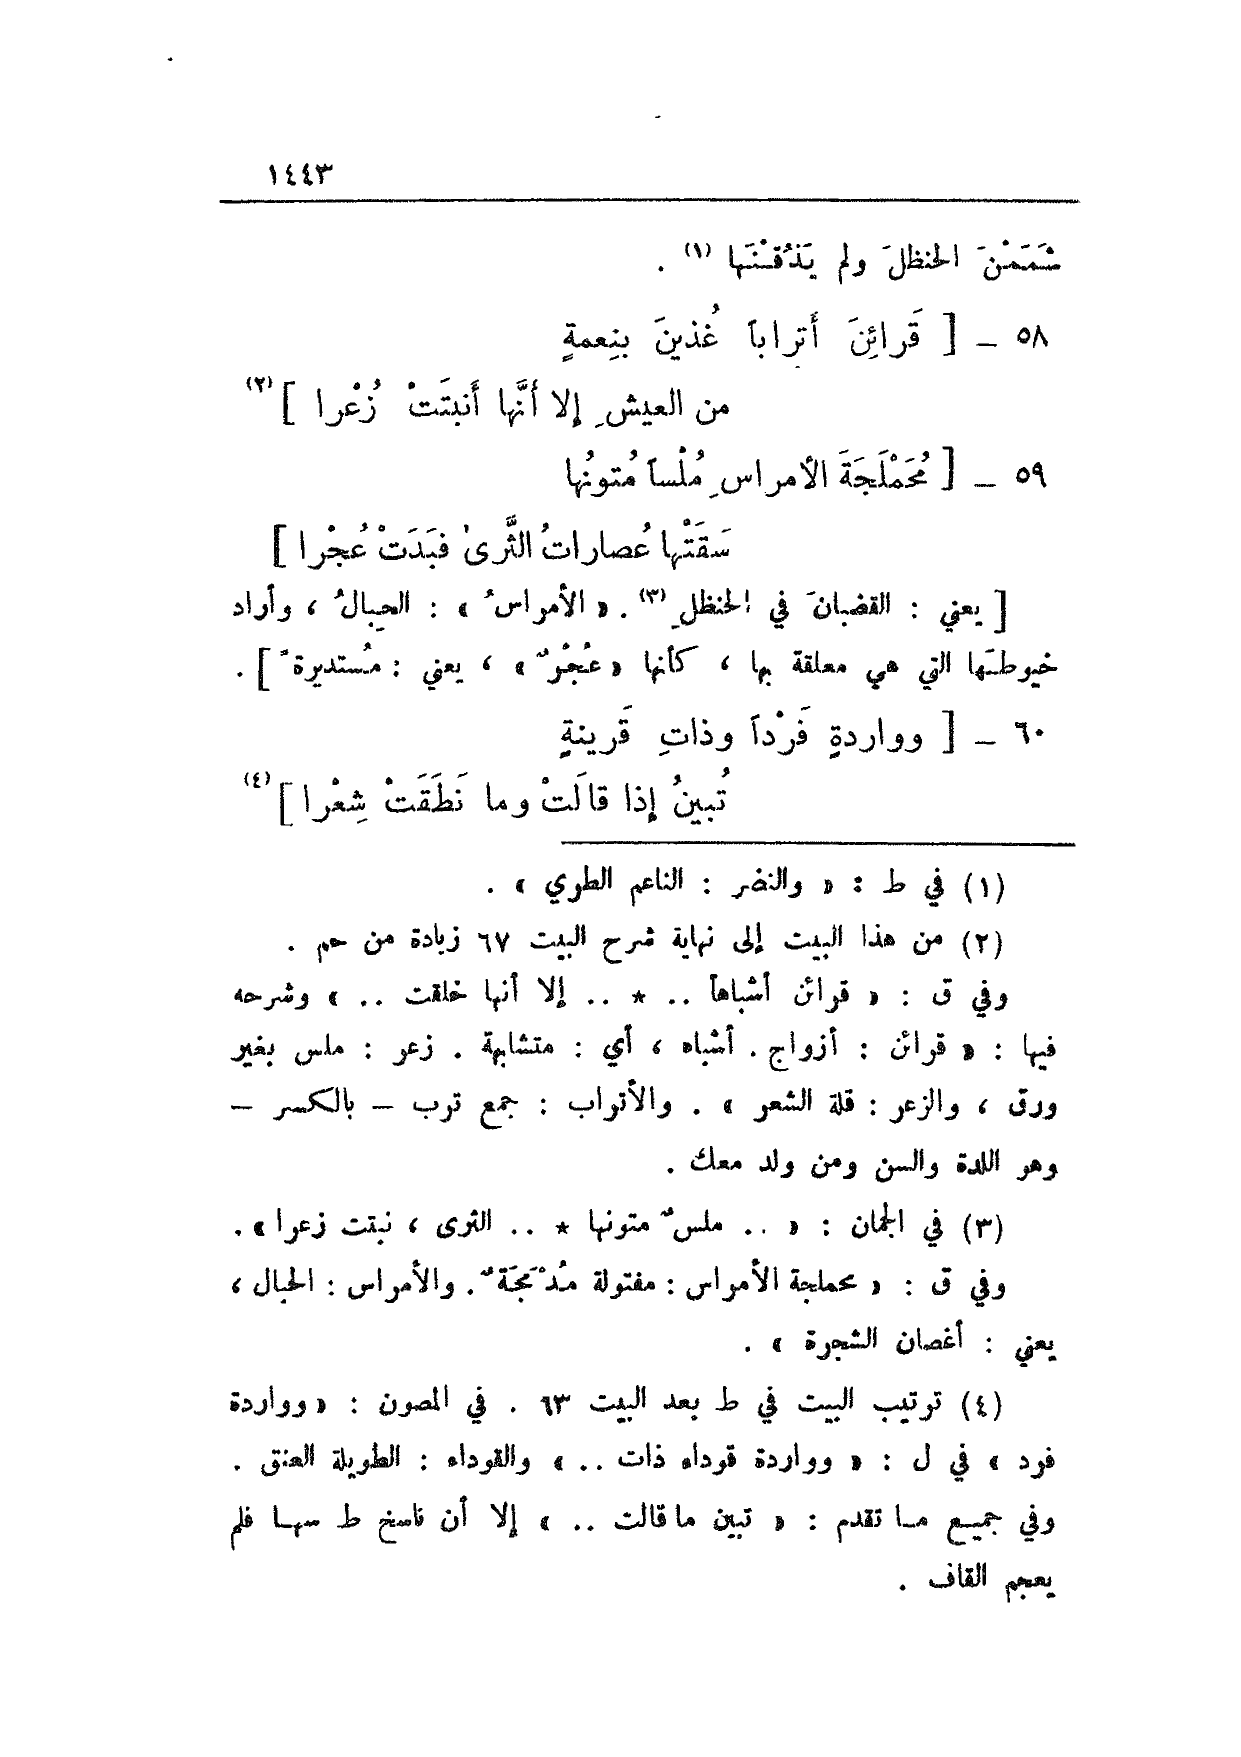 ١٤٤٣
شَمَمْنَ الحنظلَ ولم يَذُقْنَها (١) .
٥٨ ــ [ قَرائِنَ أَتراباً غُذينَ بنِعمةٍ
من العيشِ إلا أَنَّها أَنبتَتْ زُعْرا ] (٢)
٥٩ ــ [ مُحَمْلَجَةَ الأمراسِ مُلْساً مُتونُها
سَقَتْها عُصاراتُ الثَّرىٰ فبَدَتْ عُجْرا ]
[ يعني : القضبانَ في الحنظلِ (٣) . « الأمراسُ » : الحِبالُ ، وأراد
خيوطَها التي هي معلقة بها ، كأنها « عُجْرٌ » ، يعني : مُستديرةً ] .
٦٠ ــ [ وواردةٍ فَرْداً وذاتِ قَرينةٍ
تُبينُ إذا قالَتْ وما نَطَقَتْ شِعْرا ] (٤)
(١) في ط : « والنضر : الناعم الطوي » .
(٢) من هذا البيت إلى نهاية شرح البيت ٦٧ زيادة من حم .
وفي ق : « قرائن أشباهاً .. * .. إلا أنها خلقت .. » وشرحه
فيها : « قرائن : أزواج . أشباه ، أي : متشابهة . زعر : ملس بغير
ورق ، والزعر : قلة الشعر » . والأتراب : جمع ترب – بالكسر –
وهو اللدة والسن ومن ولد معك .
(٣) في الجمان : « .. ملسٌ متونها * .. الثرى ، نبتت زعرا » .
وفي ق : « محملجة الأمراس : مفتولة مُدْمَجَةٌ . والأمراس : الحبال ،
يعني : أغصان الشجرة » .
(٤) ترتيب البيت في ط بعد البيت ٦٣ . في المصون : « وواردة
فرد » في ل : « وواردة قوداء ذات .. » والقوداء : الطويلة العنق .
وفي جميع ما تقدم : « تبين ما قالت .. » إلا أن ناسخ ط سها فلم
يعجم القاف .